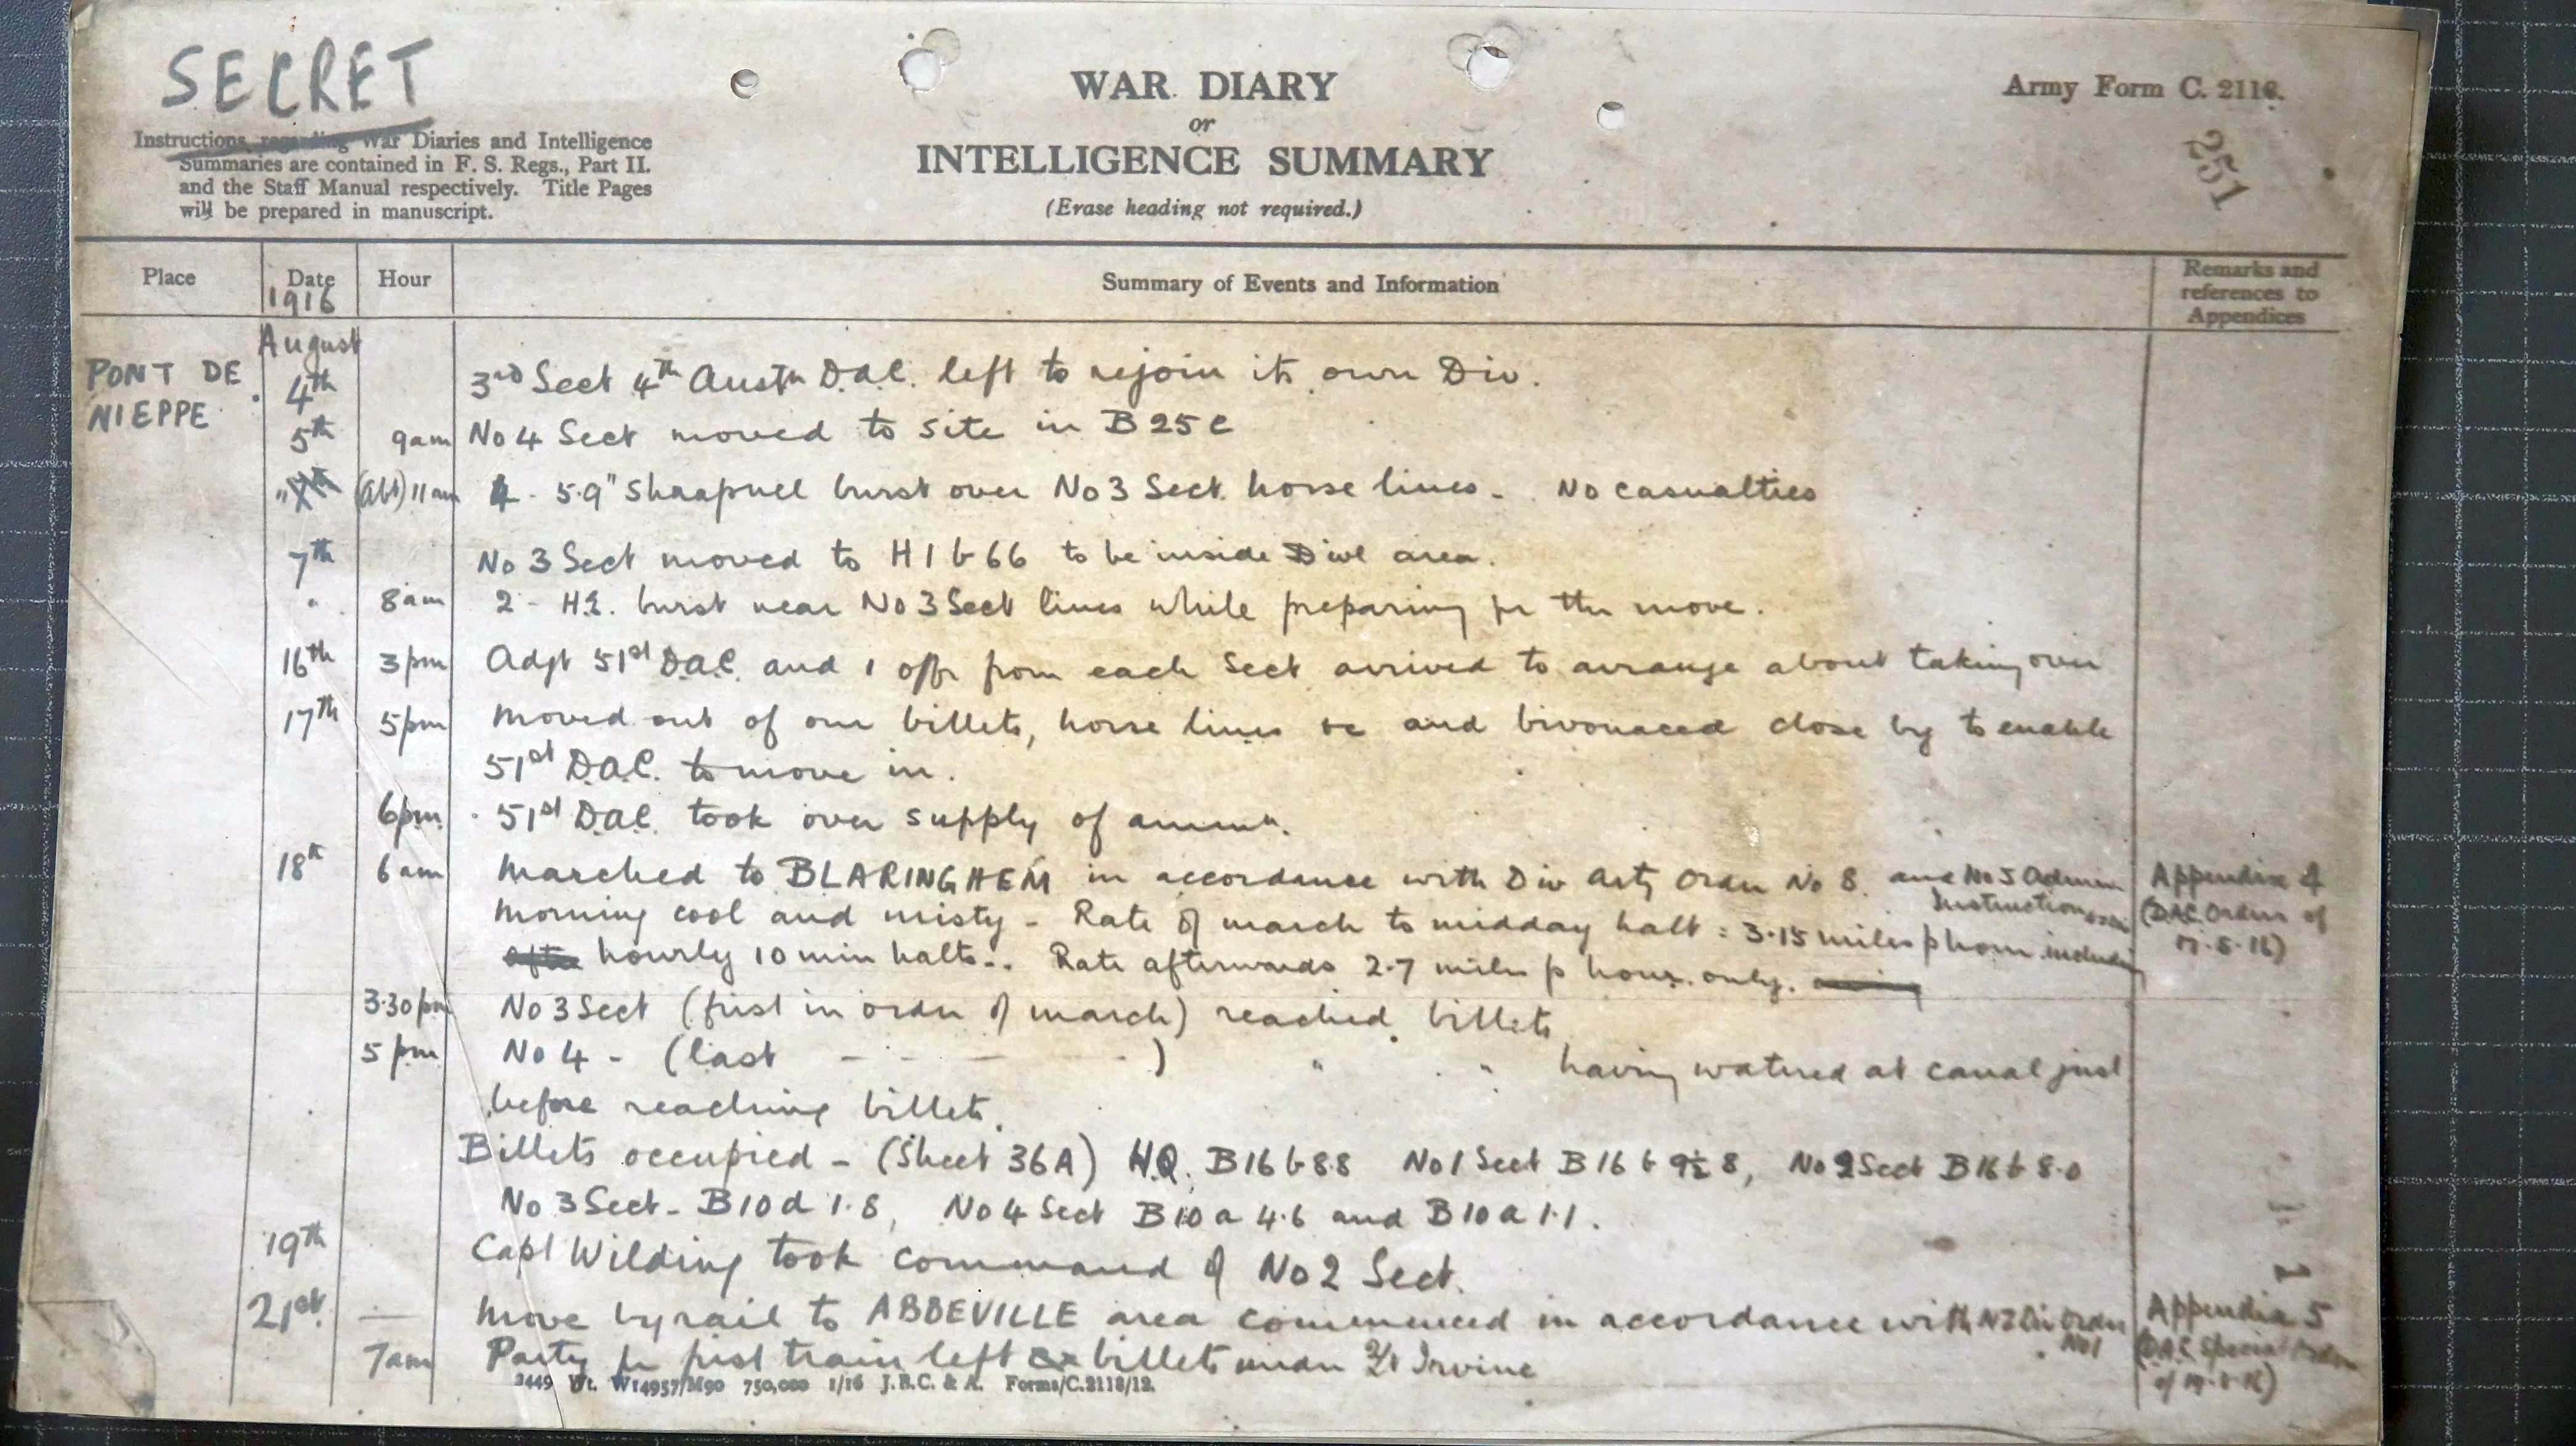 SECRET
Instructions regarding War Diaries and Intelligence
Summaries are contained in F. S. Regs., Part II.
and the Staff Manual respectively. Title Pages
will be prepared in manuscript.
WAR DIARY
or
INTELLIGENCE SUMMARY
(Erase heading not required.)
Army Form C. 2118.
251
Place Date Hour Summary of Events and Information Remarks and references to Appendices
1916
August
PONT DE NIEPPE. 4th 3rd Sect 4th Austn D.A.C. left to rejoin its own Div.
5th 9am No 4 Sect moved to site in B 25 c
" (abt) 11 am 4 - 5.9" Shrapnel burst over No 3 Sect. horse lines - No casualties
7th No 3 Sect moved to H 1 b 66 to be inside Divl area.
" 8am 2 - H.E. burst near No 3 Sect lines while preparing for the move.
16th 3pm Adjt 51st D.A.C. and 1 offr from each Sect arrived to arrange about taking over
17th 5pm Moved out of our billets, horse lines &c and bivouaced close by to enable
51st D.A.C. to move in.
6pm. 51st D.A.C. took over supply of ammn.
18th 6am Marched to BLARINGHEM in accordance with Div Arty Order No 8. and No 5 Admin Instructions Appendix 4
Morning cool and misty - Rate of march to midday halt : 3.15 miles p hour including (DAC Orders of
hourly 10 min halts.. Rate afterwards 2.7 miles p hour only. 17.8.16)
3.30pm No 3 Sect (first in order of march) reached billets
5 pm No 4 - (last - - - -) " " having watered at canal just
before reaching billets.
Billets occupied - (Sheet 36A) H.Q. B16 b 8.8 No 1 Sect B 16 b 9½ 8, No 2 Sect B 16 b 8.0
No 3 Sect - B10 d 1.8, No 4 Sect B 10 a 4.6 and B 10 a 1.1.
19th Capt Wilding took command of No 2 Sect.
21st. — Move by rail to ABBEVILLE area commenced in accordance with NZ Div Order No 1 Appendix 5
7am Party for first train left billets under 2/Lt Irvine (D.A.C. Special Order
of 19.8.16)
2449 Wt. W14957/M90 750,000 1/16 J.B.C. & A. Forms/C.2118/12.